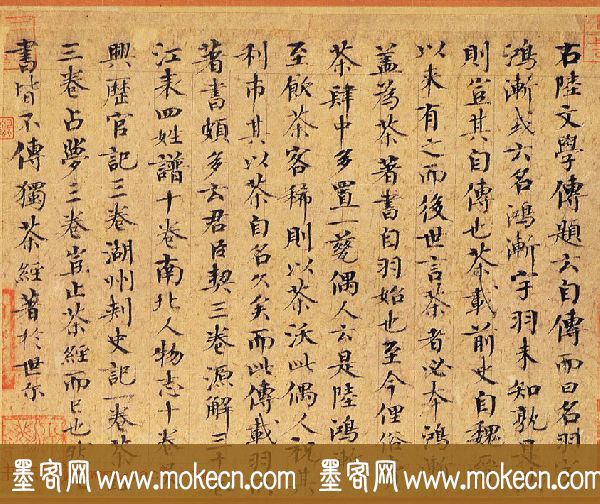 右陸文學傳題云自傳而曰名羽
鴻漸或云名鴻漸字羽未知孰是
則豈其自傳也茶載前史自魏
以來有之而後世言茶者必本鴻漸
蓋為茶著書自羽始也至今俚俗
茶肆中多置一甆偶人云是陸鴻漸
至飲茶客稀則以茶沃此偶人祝其
利市其以茶自名久矣而此傳載羽
著書頗多云君臣契三卷源解三十
江表四姓譜十卷南北人物志十卷
興歷官記三卷湖州刺史記一卷茶
三卷占夢三卷豈止茶經而已也然
書皆不傳獨茶經著於世尔
墨客网 www.mokecn.com 墨客网 www.mokecn.com